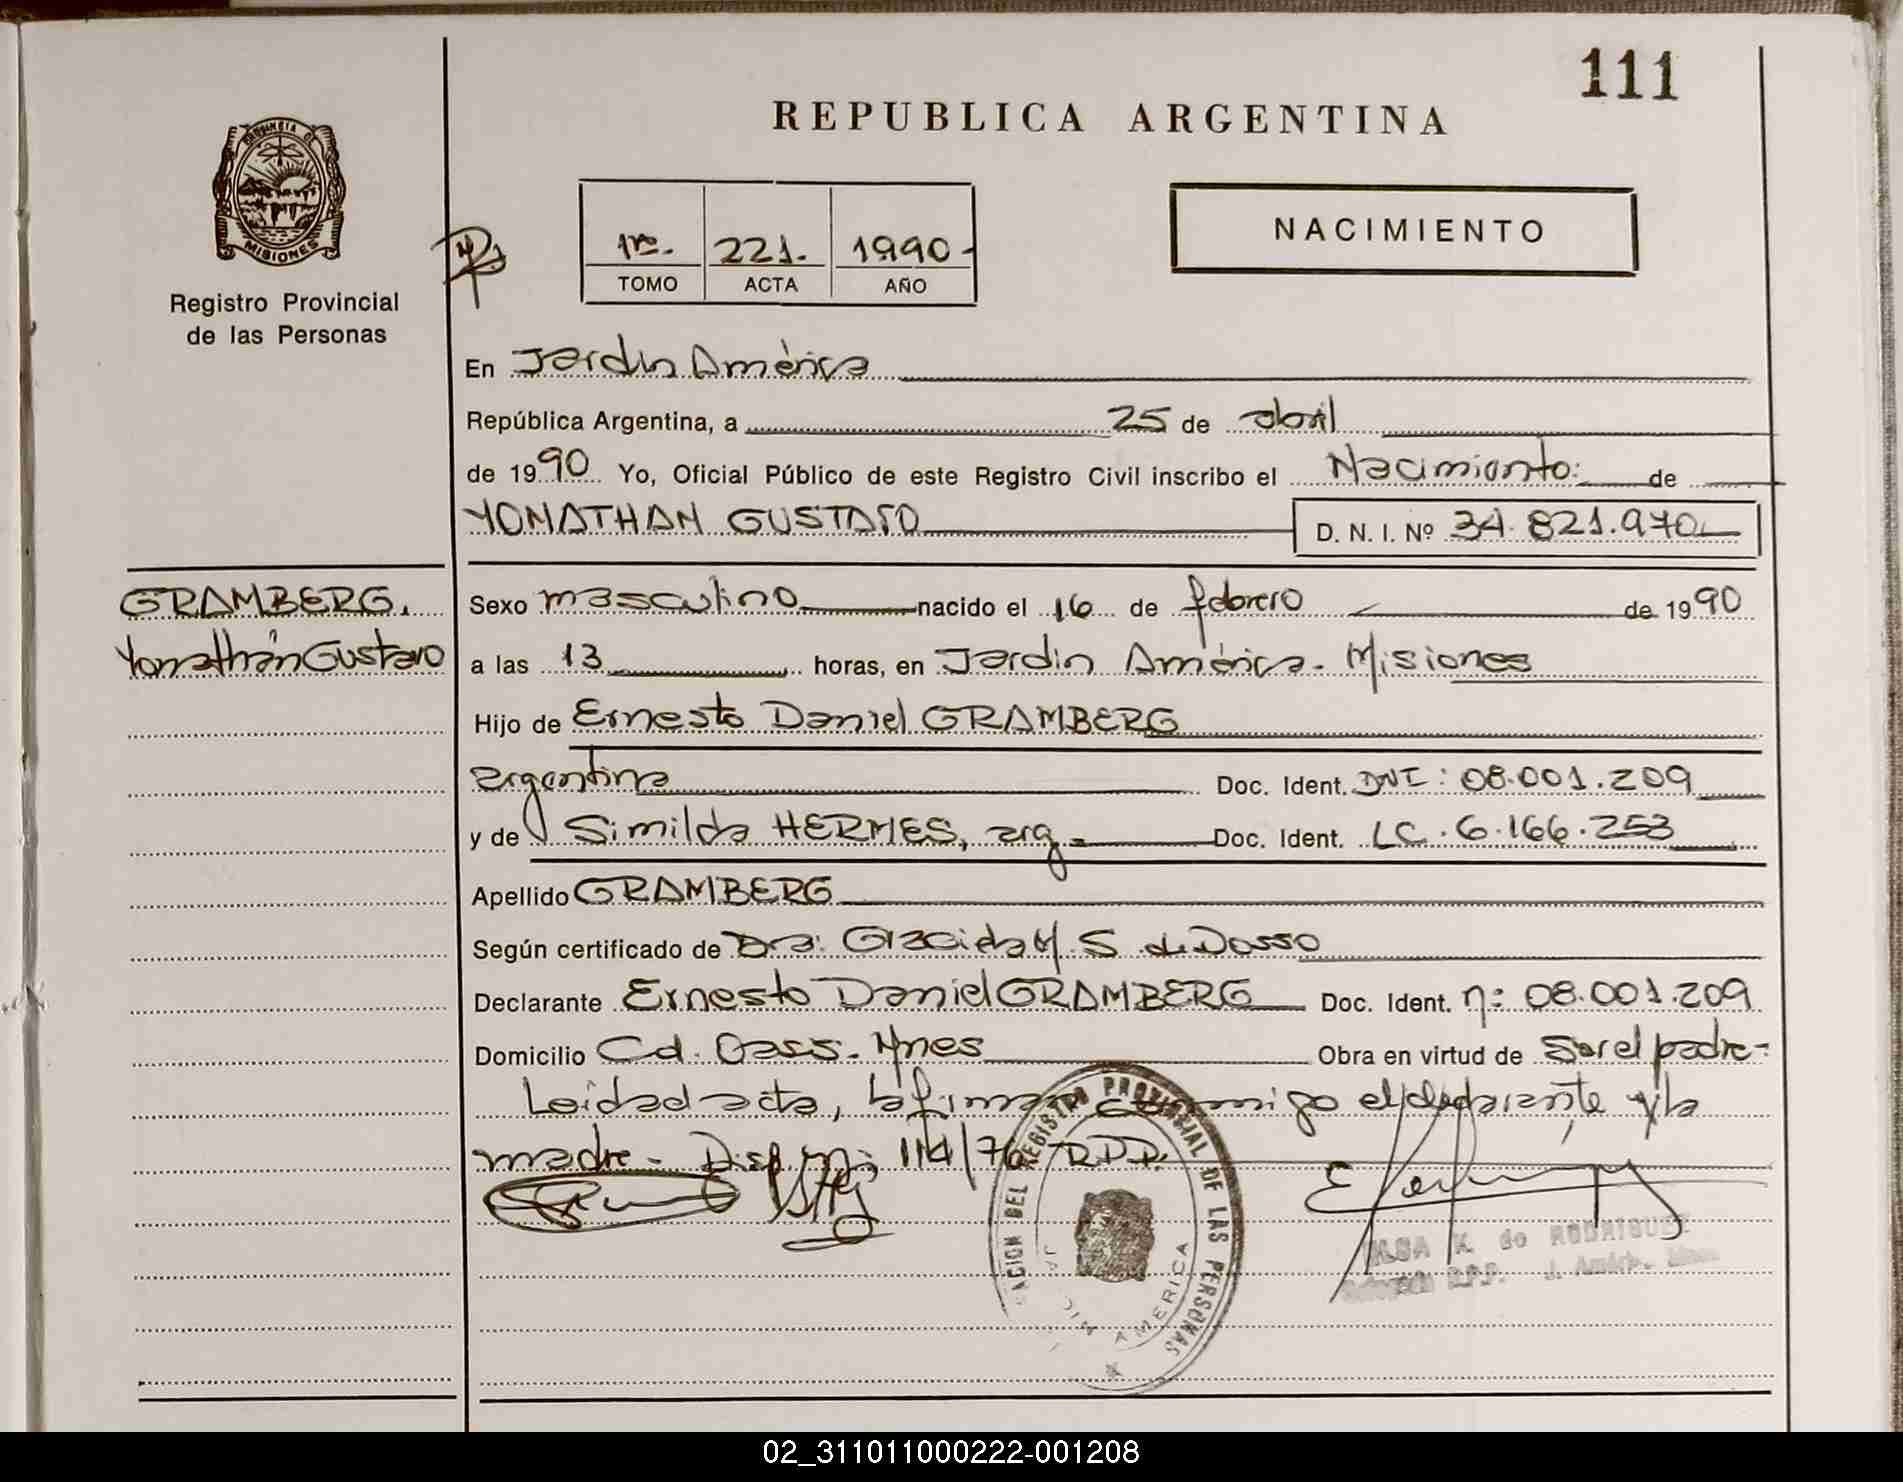 111
REPUBLICA ARGENTINA
PROVINCIA DE
MISIONES
Registro Provincial
de las Personas
1ro. 221. 1990-
TOMO ACTA AÑO
NACIMIENTO
En Jardín América
República Argentina, a 25 de abril
de 1990 Yo, Oficial Público de este Registro Civil inscribo el Nacimiento: de
YONATHAN GUSTAVO
D. N. I. Nº 34.821.970
GRAMBERG.
Yonathán Gustavo
Sexo masculino nacido el 16 de febrero de 1990
a las 13 horas, en Jardín América - Misiones
Hijo de Ernesto Daniel GRAMBERG
argentina Doc. Ident. DNI: 08.001.209
y de Similda HERMES, arg. Doc. Ident. LC. 6.166.253
Apellido GRAMBERG
Según certificado de Dra. M. S. de Dosso
Declarante Ernesto Daniel GRAMBERG Doc. Ident. nº: 08.001.209
Domicilio Cd. Oass. Mnes Obra en virtud de Ser el padre-
Leída el acta, la firman conmigo el declarante y la
madre- Disp. nº: 114/76 RPP.
DEL REGISTRO PROVINCIAL DE LAS PERSONAS
JARDIN AMERICA
K. de RODRIGUEZ
R.P.P.
02_311011000222-001208